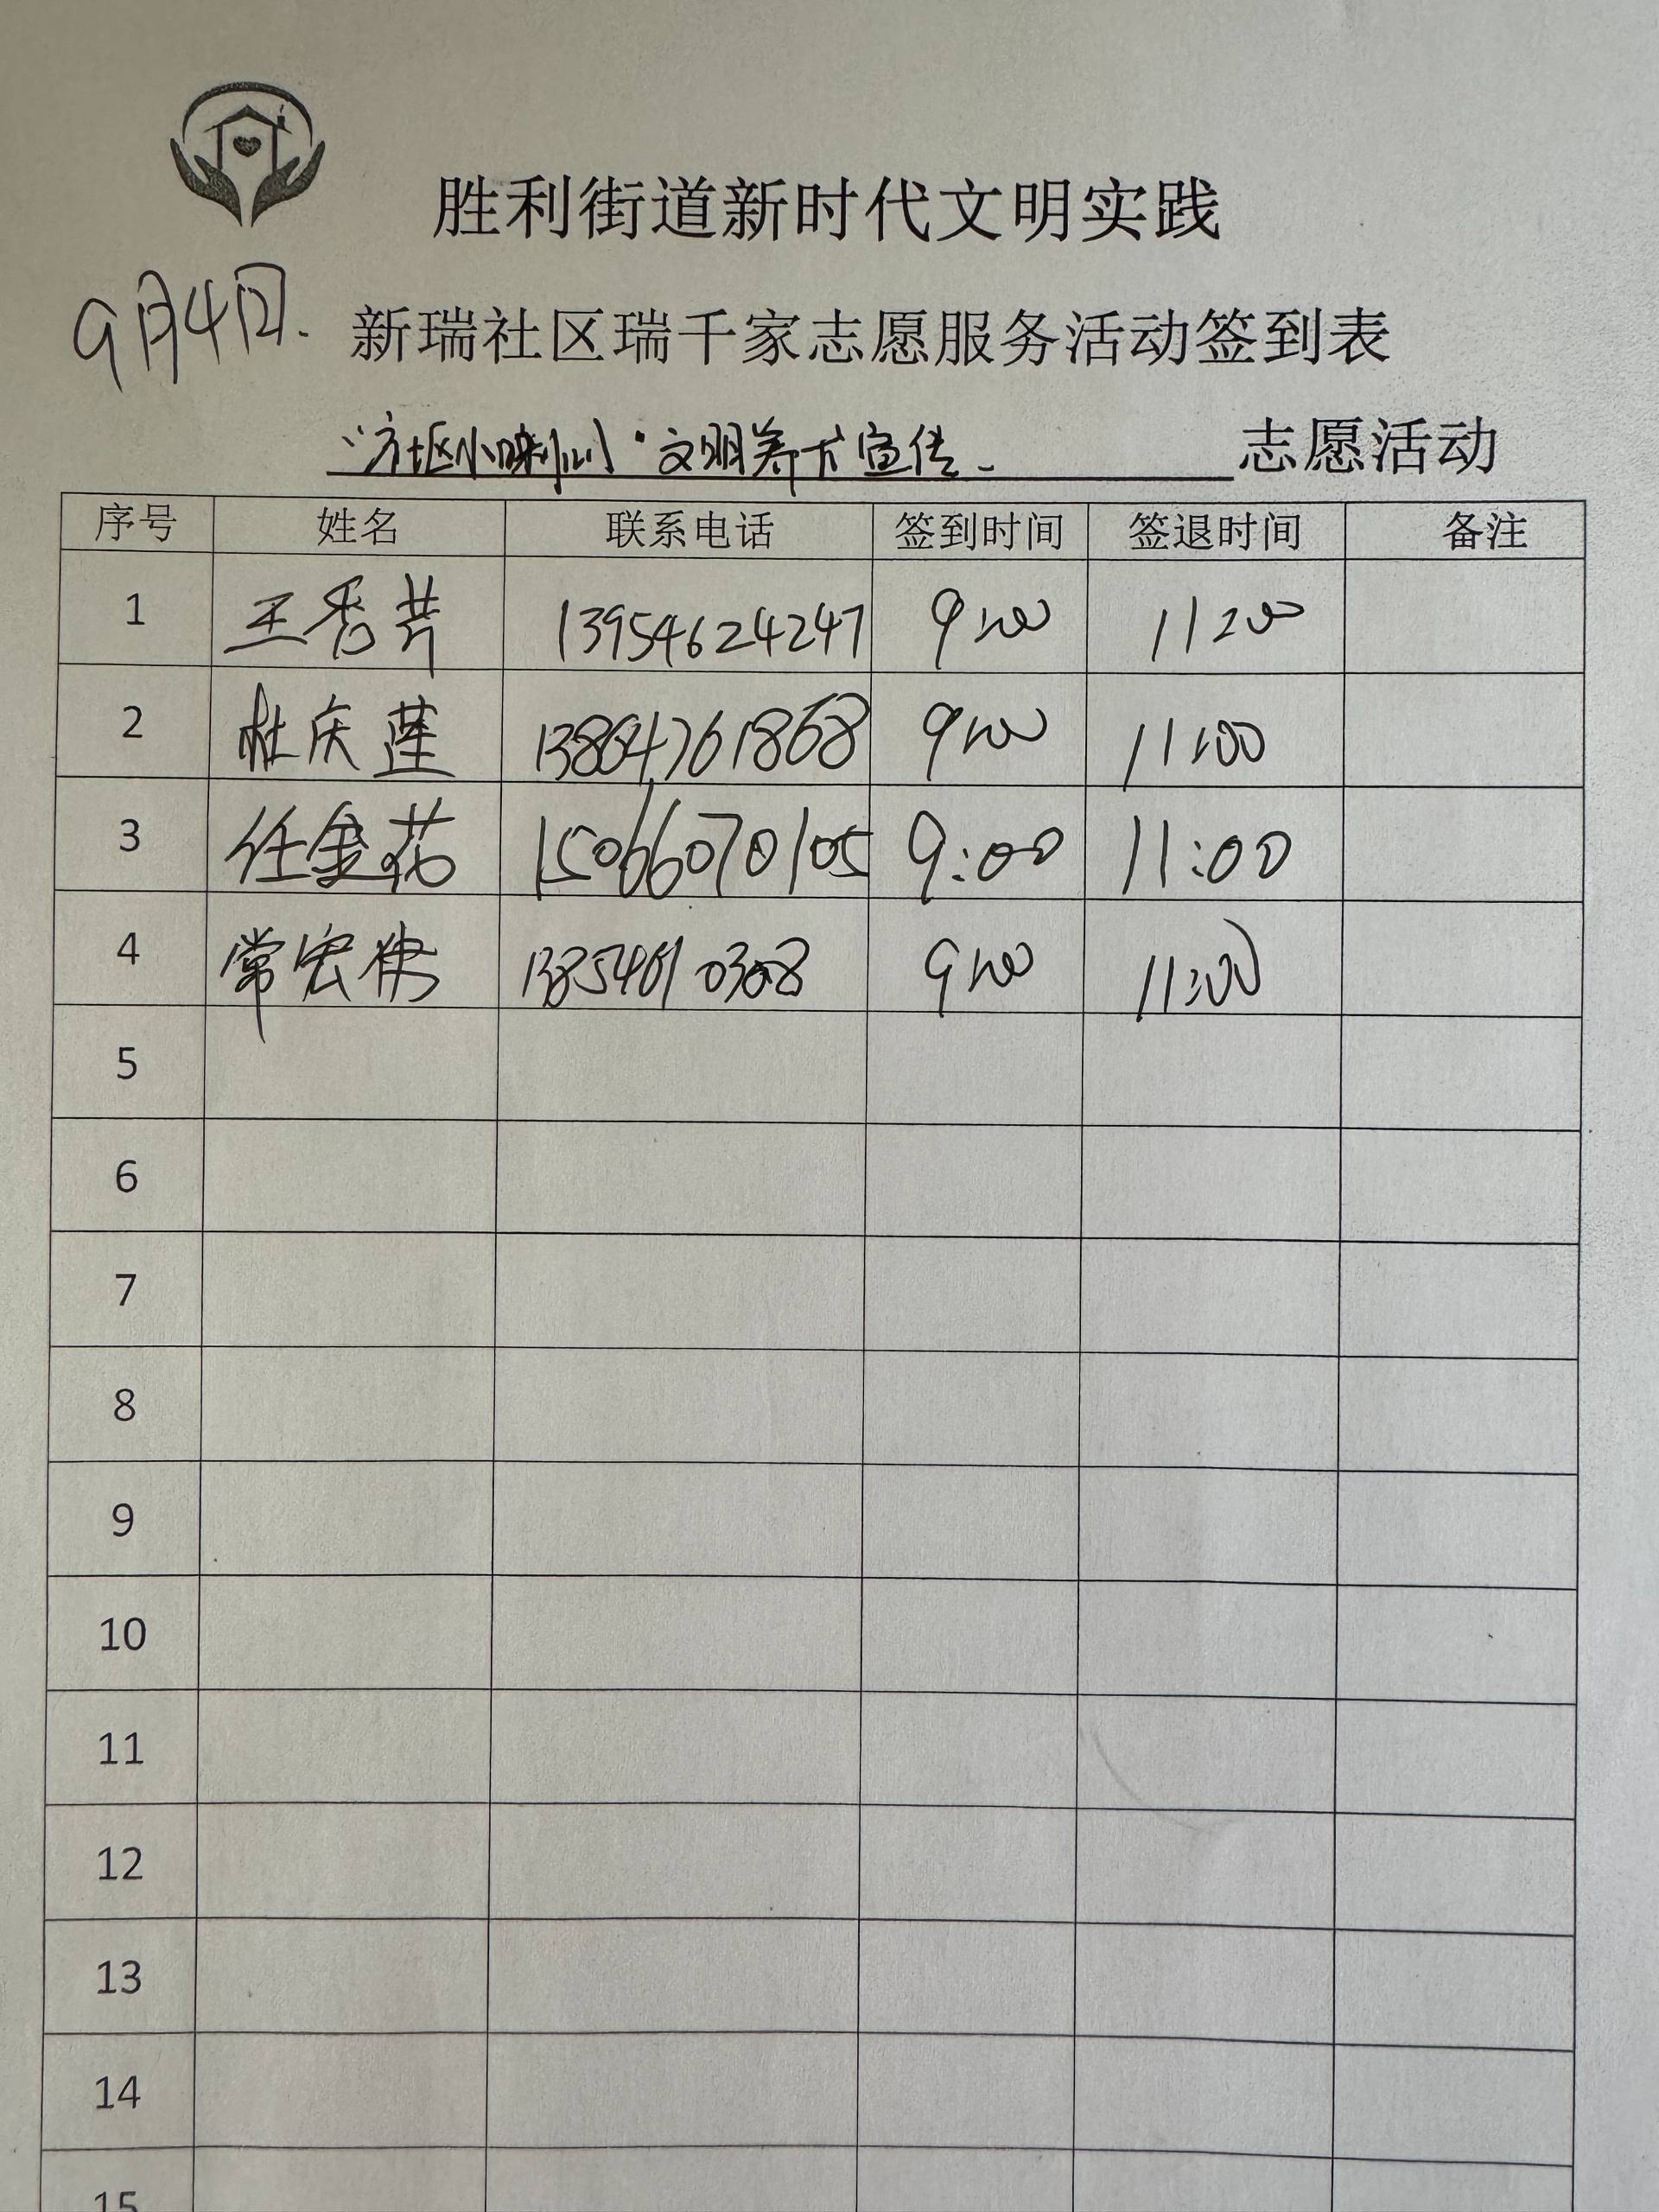 胜利街道新时代文明实践
9月4日. 新瑞社区瑞千家志愿服务活动签到表
"社区小喇叭"文明养犬宣传 志愿活动
序号 姓名 联系电话 签到时间 签退时间 备注
1 王秀芹 13954624247 9:00 11:00
2 杜庆莲 13864761868 9:00 11:00
3 任金花 15066070105 9:00 11:00
4 常宏伟 9:00 11:00
5
6
7
8
9
10
11
12
13
14
15